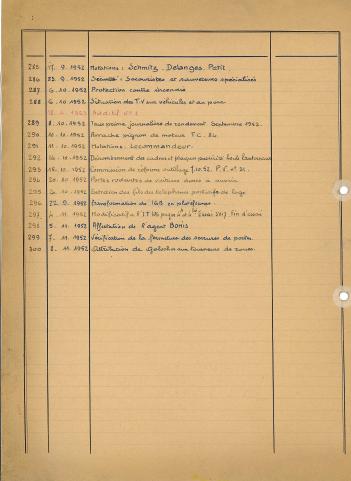 285 17. 9. 1952 Mutations : Schmitz. Delanges. Petit
286 23. 9. 1952 Sécurité : Secouristes et sauveteurs spécialisés
287 6. 10. 1952 Protection contre incendie
288 6. 10. 1952 Situation des T.V aux véhicules et au parc
Additif N° 1
289 8. 10. 1952 Taux prime journalière de rendement Septembre 1952.
290 10. 10. 1952 Arrache pignon de moteur T.C.
291 11. 10. 1952 Mutations. Lecommandeur.
292 14. 10. 1952 Dénombrement des cadres et plaques
293 18. 10. 1952 Commission de réforme outillage 7.10.52. P.V. n° 21.
294 20. 10. 1952 Portes roulantes de voitures
295 10. 1952 Extraction des fils de téléphones portatifs de loge
296 22. 9. 1952 Transformation de en plateformes
297 4. 11. 1952 Modificatif à fin d'essai
298 5. 11. 1952 Affectation de l'agent Bonis
299 7. 11. 1952 Vérification de la fermeture des serrures de portes.
300 8. 11. 1952 Attribution de galoches aux tourneurs de roues.